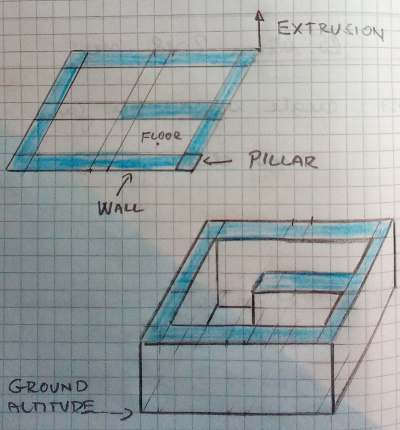 EXTRUSION
FLOOR
PILLAR
WALL
GROUND
ALTITUDE